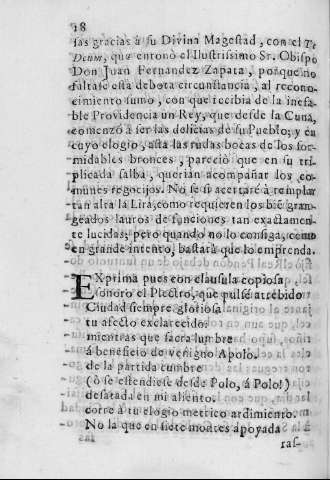 18
sas gracias à su Divina Magestad, con el Te
Deum, que entonò el Ilustrissimo Sr. Obispo
Don Juan Fernandez Zapata, porque no
faltasse esta debota circunstancia, al recono-
cimiento sumo, con que recibia de la inefa-
ble Providencia un Rey, que desde la Cuna,
comenzò a ser las delicias de su Pueblo; y en
cuyo elogio, asta las rudas bocas de los for-
midables bronces, pareciò que en su tri-
plicada salba, querian acompañar los co-
munes regocijos. No se si acertarè à templar
tan alta la Lira, como requieren los biẽ gran-
geados lauros de funciones tan exactamen-
te lucidas; pero quando no lo consiga, como
en grande intento, bastarà que lo emprenda.
EXprima pues con clausula copiosa
sonoro el Plectro, que pulsè atrebido
Ciudad siempre gloriosa
tu afecto exclarecido:
mientras que sacra lumbre
á beneficio de venigno Apolo.
de la partida cumbre
(ò se estendiese desde Polo, á Polo!)
desatada en mi aliento.
corre á tu elogio metrico ardimiento.
No la que en siete montes apoyada
ras-